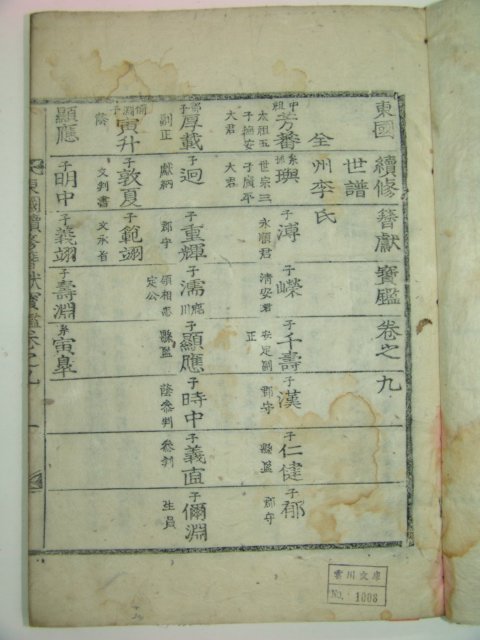 東國續修簪獻寶鑑卷之九
世譜
全州李氏
中祖芳蕃 太祖五子撫安大君
系孫璵 世宗三子廣平大君
子溥 永順君
子嶸 淸安君
子千壽 安定副正
子漢 郡守
子仁健 縣監
子郁 郡守
郁子厚載 副正
子迥 獻納
子重輝 郡守
子濡 鹿川 領相 定公
子顯應 縣監
子時中 蔭參判
子義直 參判
子儞淵 生員
儞淵子寅升 蔭
子敦夏 文判書
子範翊 文承旨
顯應
子明中
子義翊
子壽淵
系寅皐
東國續修簪獻寶鑑卷之九 一
雲川文庫
No. 1008